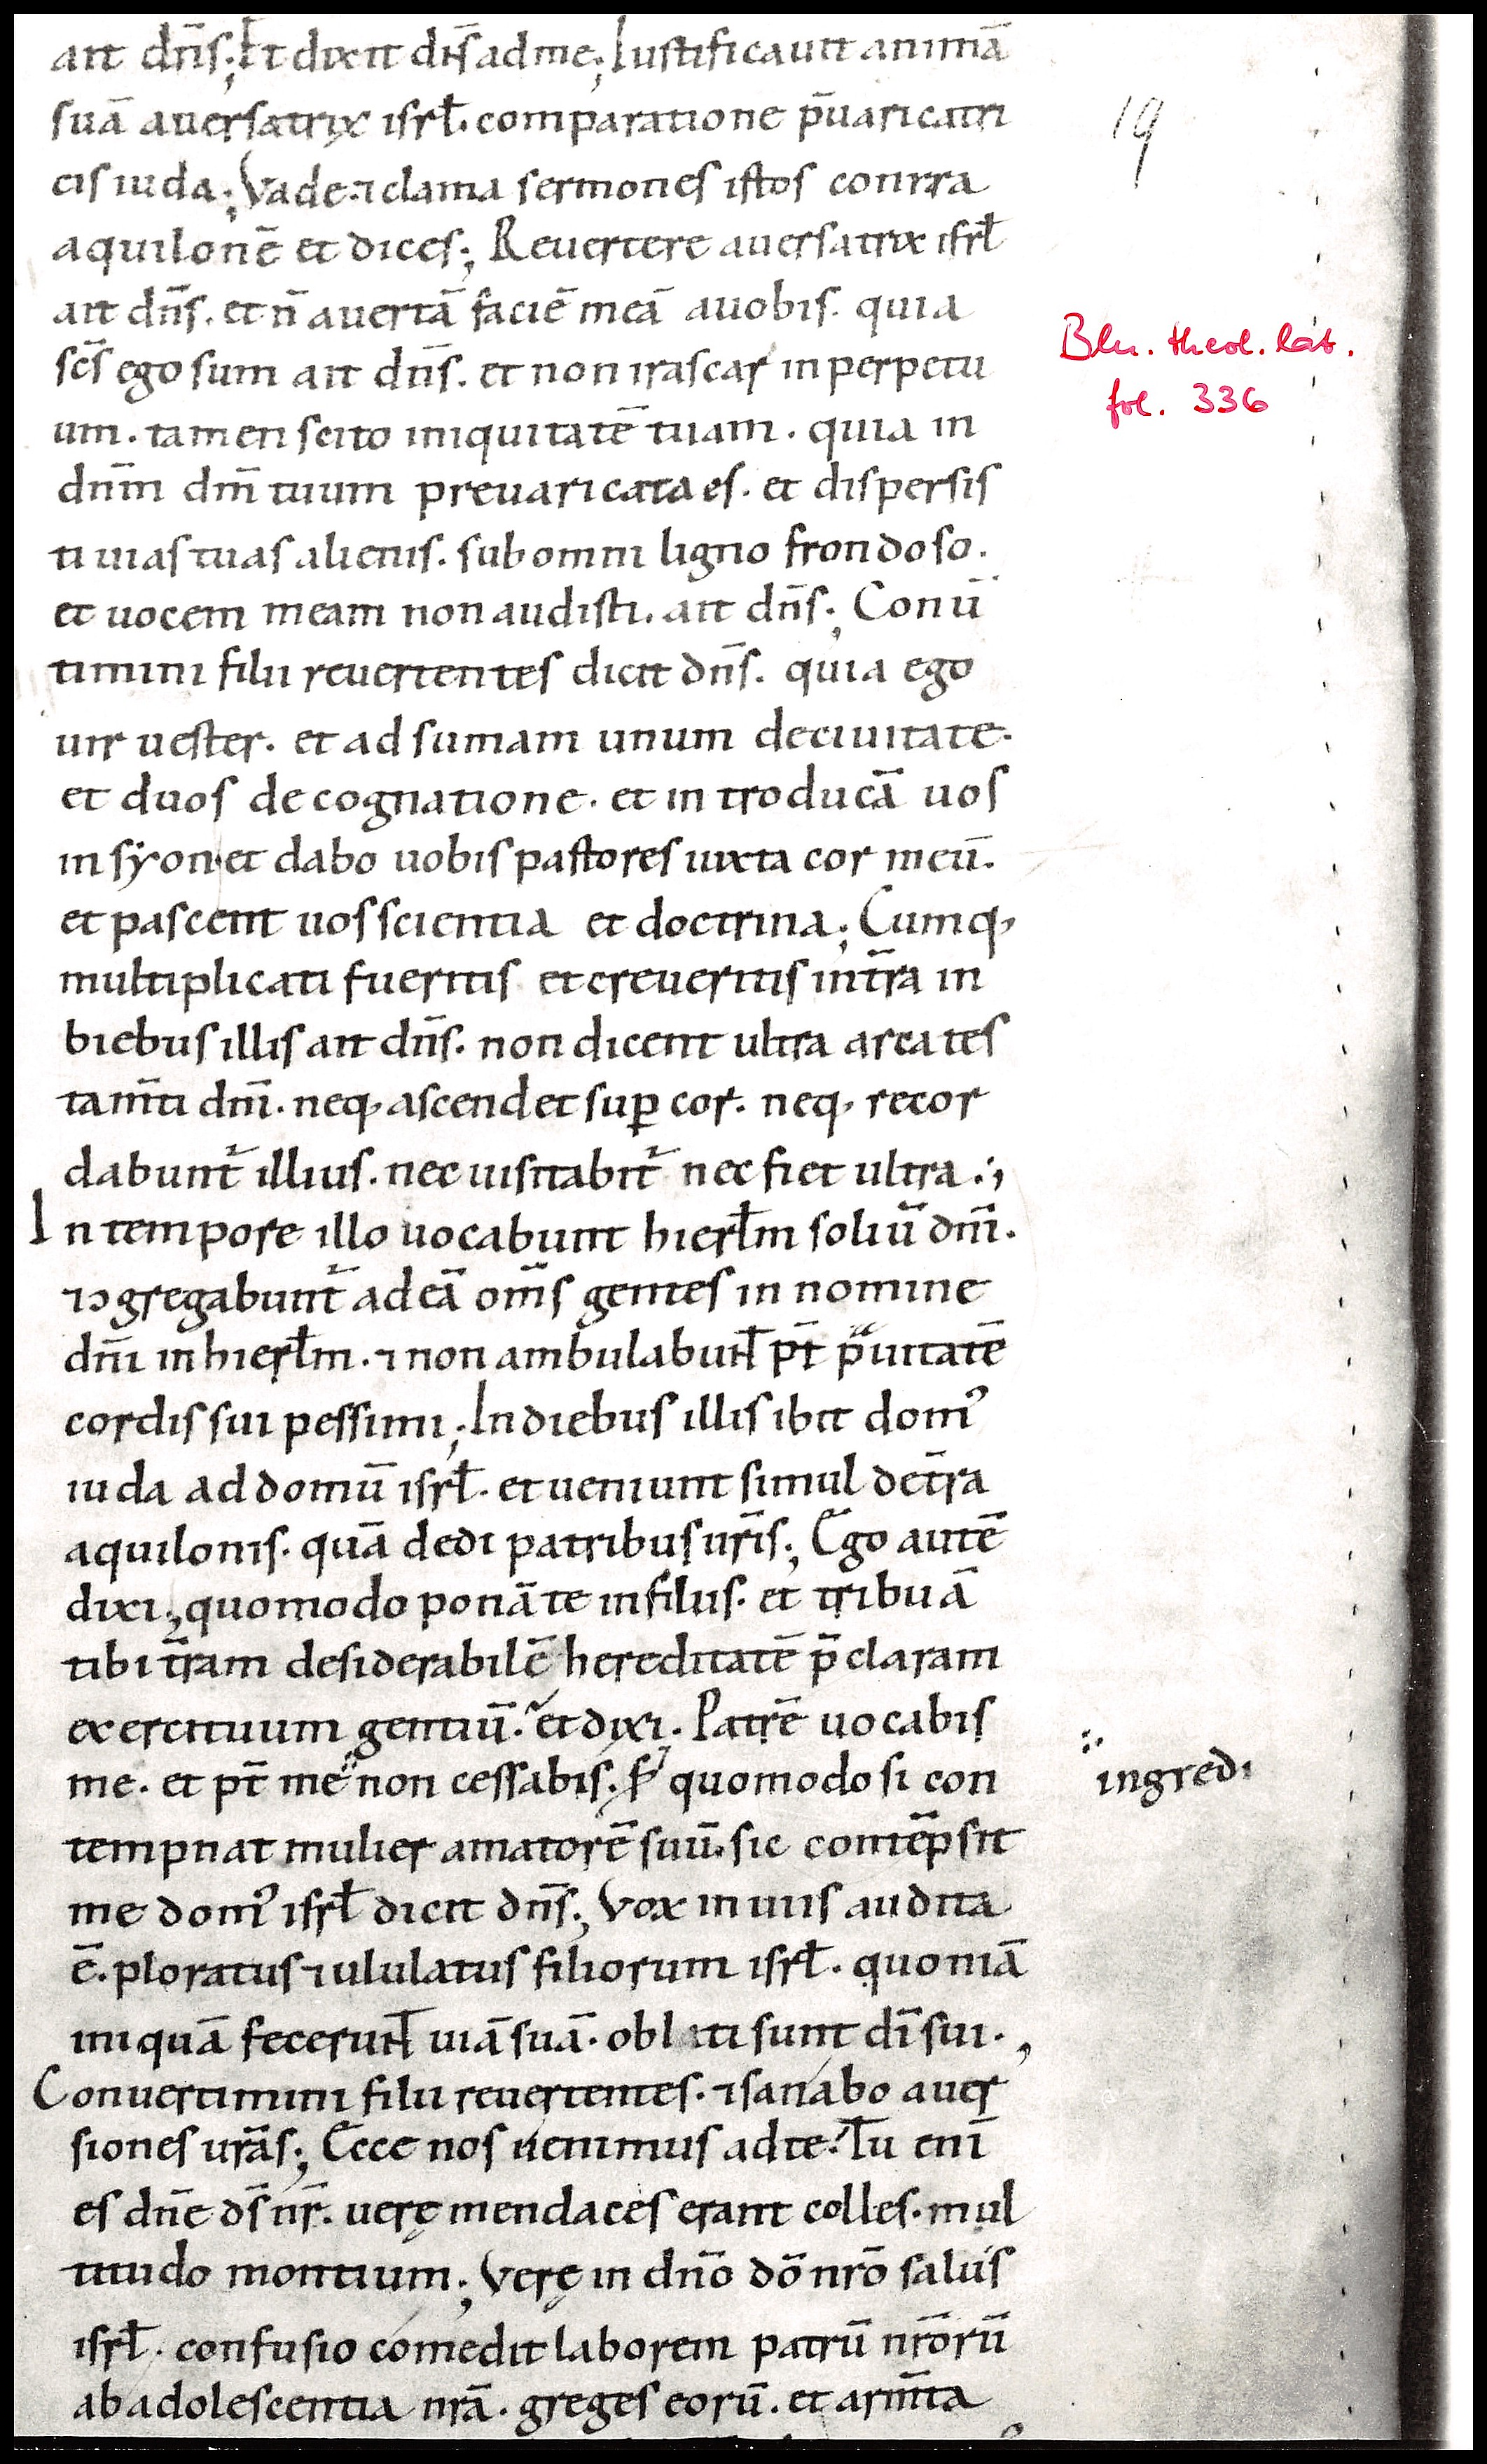 ait dn̄s; Et dixit dn̄s ad me; Iustificauit animā
suā auersatrix isrł. comparatione p̄uaricatri
cis iuda; Vade. ⁊ clama sermones istos contra
aquilonē et dices; Reuertere auersatrix isrł
ait dn̄s. et n̄ auertā faciē meā a uobis. quia
sc̄s ego sum ait dn̄s. et non irascar in perpetu
um. tamen scito iniquitatē tuam. quia in
dn̄m dm̄ tuum preuaricata es. et dispersis
ti uias tuas alienis. sub omni ligno frondoso.
et uocem meam non audisti. ait dn̄s; Conū
timini filii reuertentes dicit dn̄s. quia ego
uir uester. et adsumam unum de ciuitate.
et duos de cognatione. et introducā uos
in syon. et dabo uobis pastores iuxta cor meū.
et pascent uos scientia et doctrina; Cumq,
multiplicati fueritis et creueritis in tr̄a in
biebus illis ait dn̄s. non dicent ultra arca tes
tam̄ti dn̄i. neq, ascendet suꝑ cor. neq, recor
dabunt᷑ illius. nec uisitabit᷑ nec fiet ultra.;
In tempore illo uocabunt hierłm soliū dn̄i.
⁊ ↄgregabunt᷑ ad eā om̄s gentes in nomine
dn̄i in hierłm. ⁊ non ambulabunt̄ pt̄ pͣuitatē
cordis sui pessimi; In diebus illis ibit domꝰ
iuda ad domū isrł. et ueniunt simul de tr̄a
aquilonis. quā dedi patribus ur̄is; Ego autē
dixi; quomodo ponā te in filiis. et tribuā
tibi tr̄am desiderabilē hereditatē p̄claram
exercituum gentiū. et dixi. Patrē uocabis
me. et pt̄ me non cessabis. s; quomodo si con
19
Bln. theol. lat.
fol. 336
ingredi
tempnat mulier amatorē suū. sic contēpsit
me domꝰ isrł dicit dn̄s; Vox in uiis audita
ē. ploratus ⁊ ululatus filiorum isrł. quoniā
iniquā fecerunt̄ uiā suā. obliti sunt dī sui.,
Conuertimini filii reuertentes. ⁊ sanabo auer
siones urās; Ecce nos uenimus ad te. Tu enī
es dn̄e ds̄ nr̄. uerę mendaces erant colles. mul
titudo montium; Verę in dn̄o dō nrō salus
isrł. confusio comedit laborem patrū nrōrū
ab adolescentia nrā. greges eorū. et arm̄ta